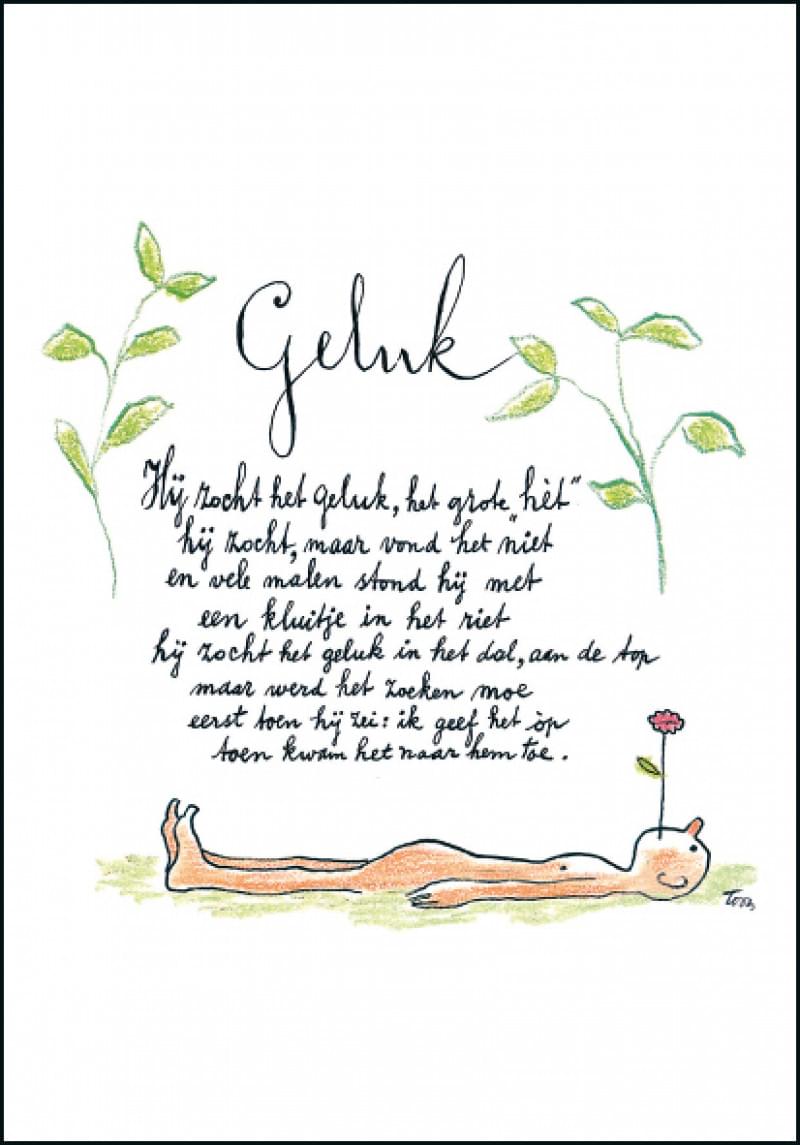 Geluk
Hij zocht het geluk, het grote „hèt”
hij zocht, maar vond het niet
en vele malen stond hij met
een kluitje in het riet
hij zocht het geluk in het dal, aan de top
maar werd het zoeken moe
eerst toen hij zei: ik geef het òp
toen kwam het naar hem toe.
Toon